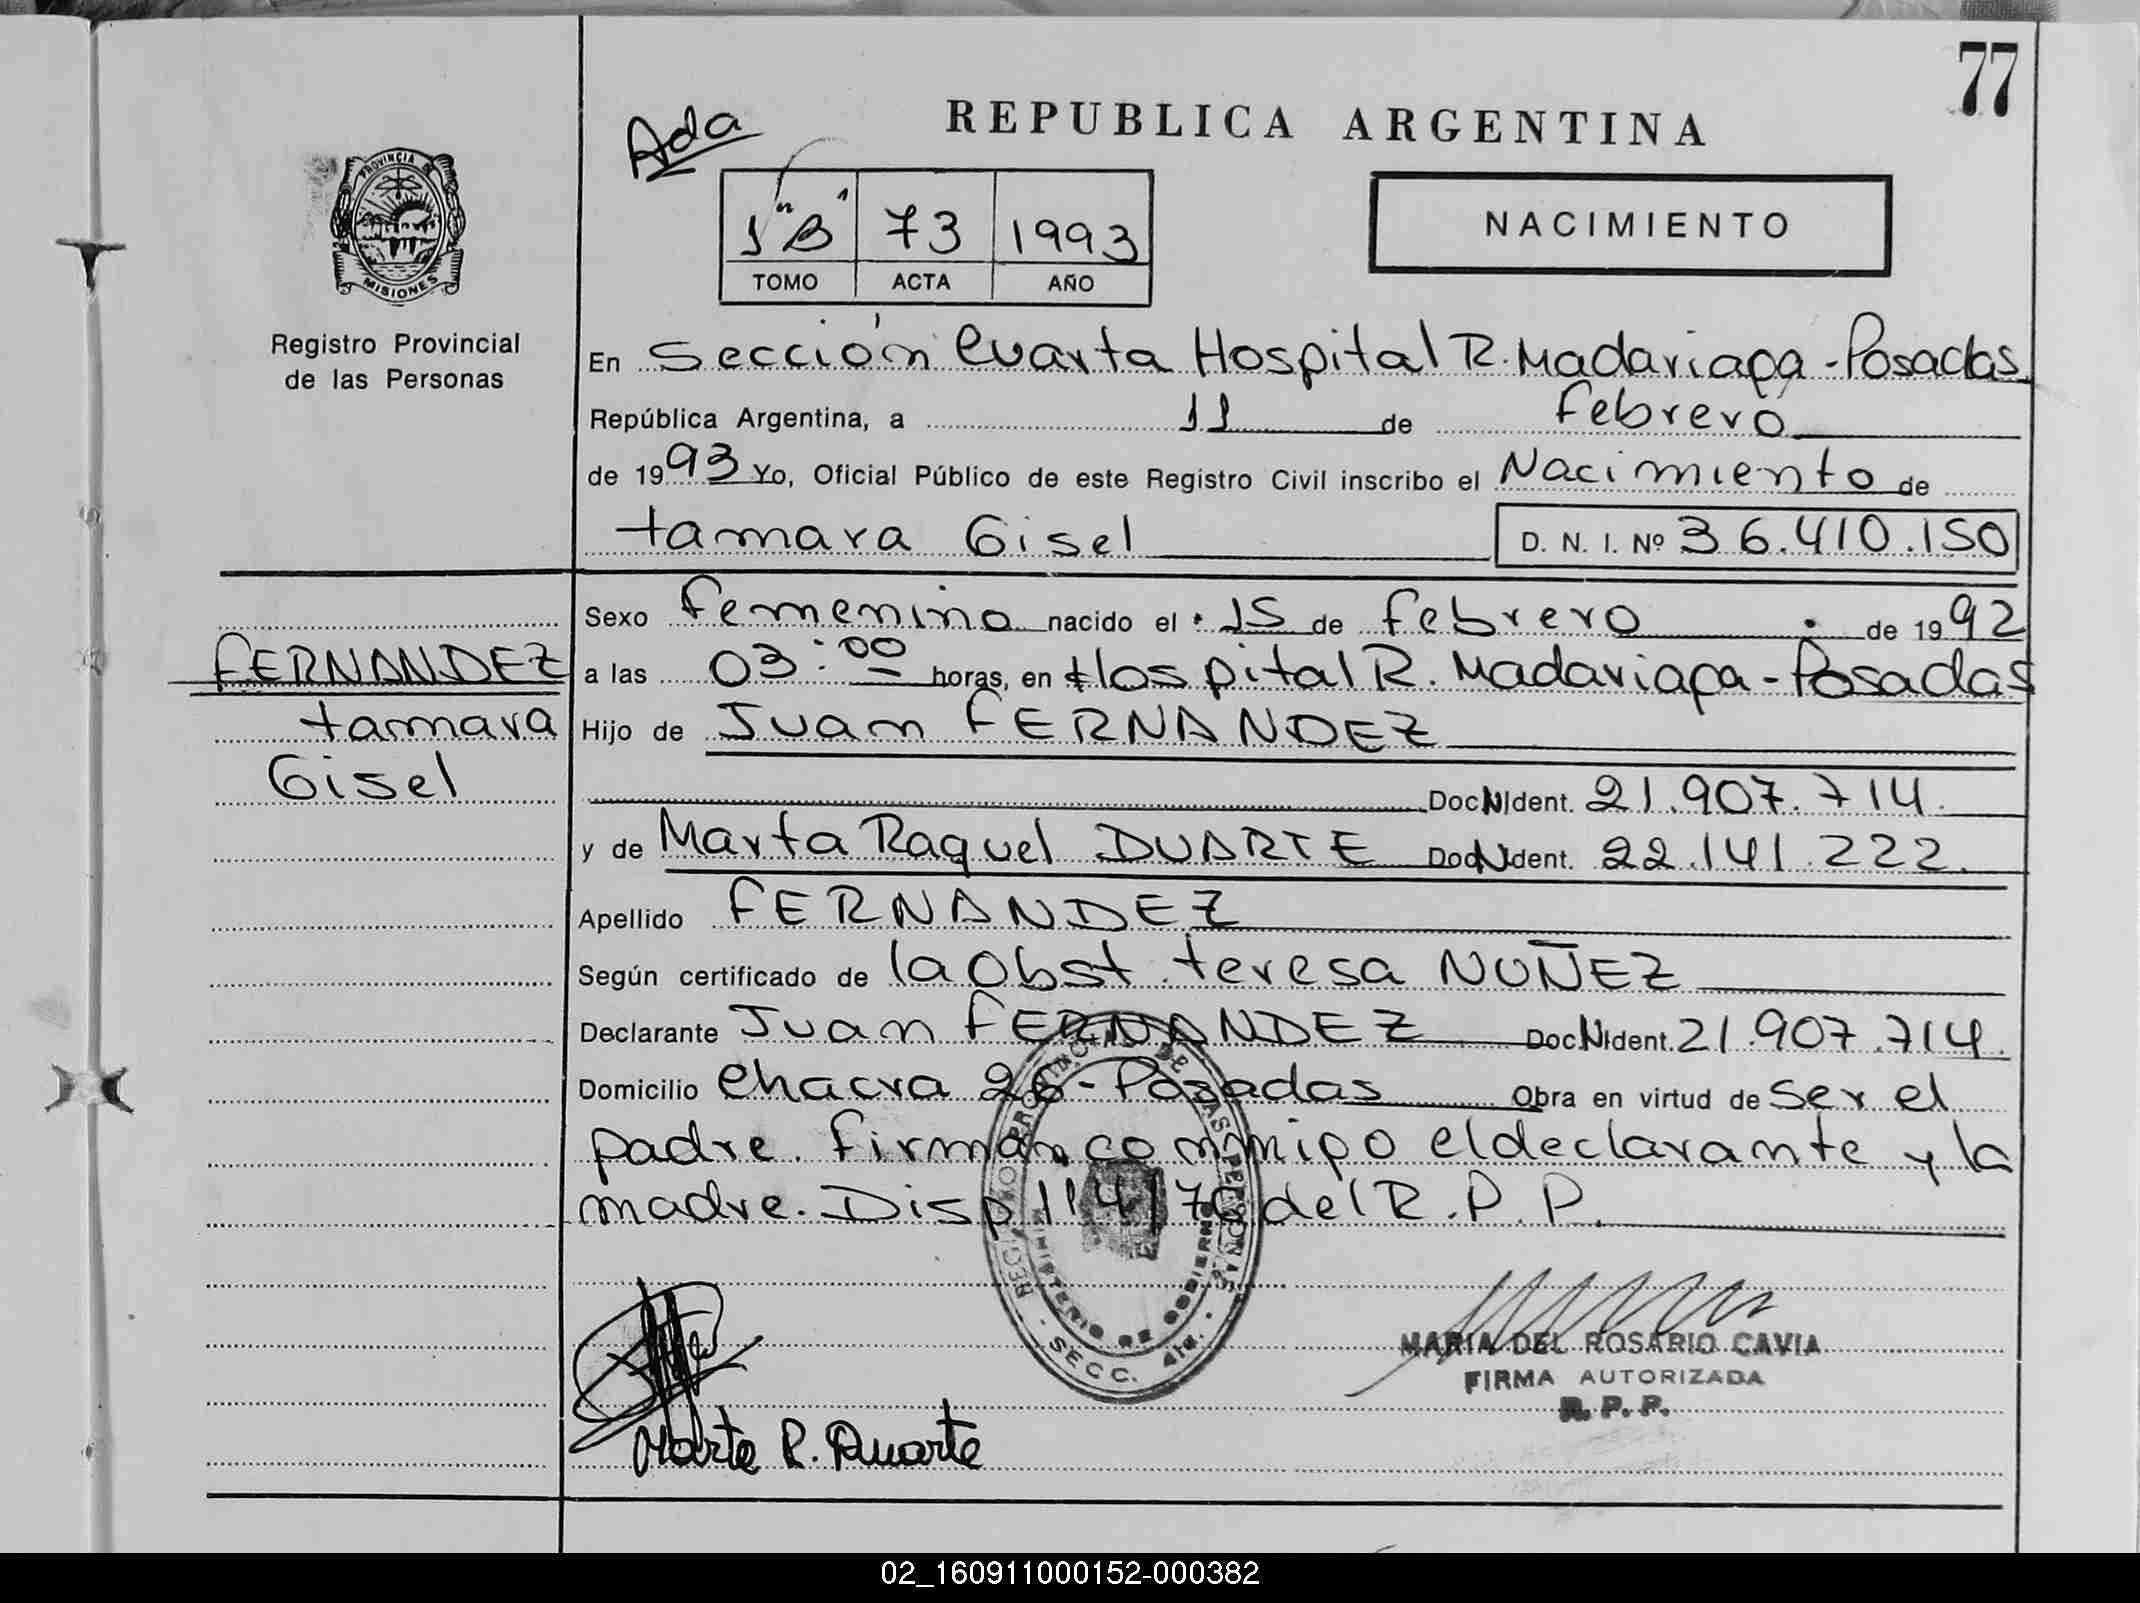 77
Ada
REPUBLICA ARGENTINA
1 "B" 73 1993
TOMO ACTA AÑO
NACIMIENTO
PROVINCIA DE
MISIONES
Registro Provincial
de las Personas
En Sección Cuarta Hospital R. Madariaga - Posadas
República Argentina, a 11 de Febrero
de 1993 Yo, Oficial Público de este Registro Civil inscribo el Nacimiento de
tamara Gisel D. N. I. Nº 36.410.150
Sexo Femenino nacido el 15 de Febrero de 1992
FERNANDEZ
tamara
Gisel
a las 03:00 horas, en Hospital R. Madariaga - Posadas
Hijo de Juan FERNANDEZ
Doc N Ident. 21.907.714.
y de Marta Raquel DUARTE Doc N Ident. 22.141.222.
Apellido FERNANDEZ
Según certificado de la Obst. teresa NUÑEZ
Declarante Juan FERNANDEZ Doc N Ident. 21.907.714.
Domicilio Chacra 26 - Posadas Obra en virtud de Ser el
padre. Firman conmigo el declarante y la
madre. Disp 114/70 del R.P.P.
REGISTRO PROVINCIAL DE LAS PERSONAS
MINISTERIO DE GOBIERNO
- SECC. 4ta. -
MARIA DEL ROSARIO CAVIA
FIRMA AUTORIZADA
R. P. P.
Marta R. Duarte
02_160911000152-000382